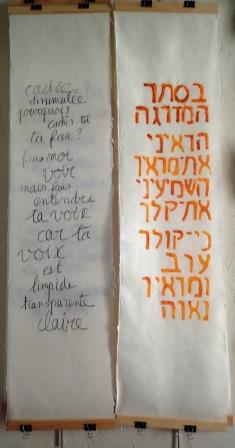 cachée
dissimulée
pourquoi?
caches-tu
ta face?
fais moi
voir
mais fais
entendre
ta voix
car ta
voix
est
limpide
transparente
claire
בסתר
המדרגה
הראיני
את־מראיך
השמיעיני
את־קולך
כי־קולך
ערב
ומראיך
נאוה